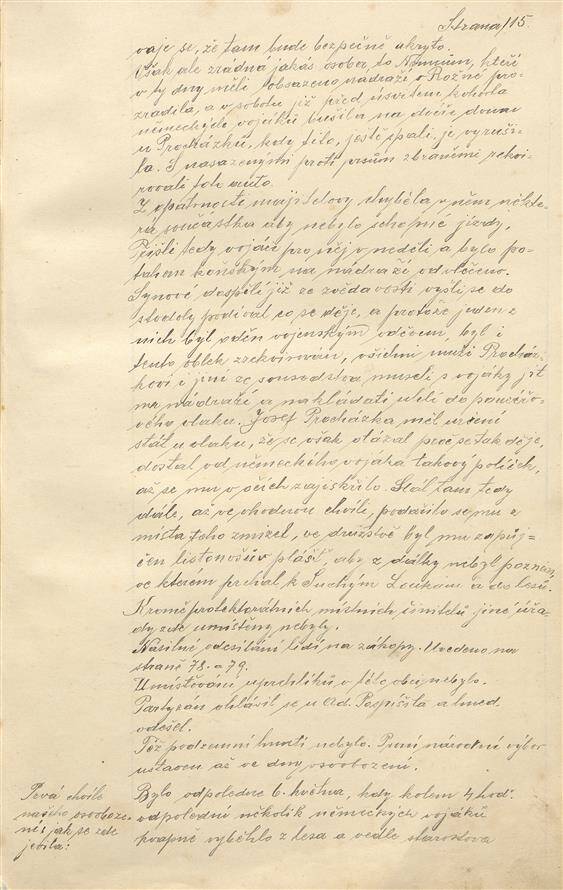 Strana/15.
vaje se, že tam bude bezpečně ukryto.
Však ale zrádná jakás osoba, to Němcům, kteří
v ty dny měli obsazeno nádraží v Rožné pro-
zradila, a v sobotu již před úsvitem kohorta
německých vojáků bušila na dvéře domu
u Procházků, kdy tito, ještě spali, je vyruši-
la. S nasazenými proti prsům zbraněmi rekvi-
rovali toto auto.
Z opatrnosti majitelovy chyběla v něm někte-
rá součástka aby nebylo schopné jízdy,
Přišli tedy vojáci pro něj v neděli a bylo po-
tahem koňským na nádraží odvlečeno.
Synové dospělí již ze zvědavosti vyšli se do
stodoly podívat co se děje, a protože jeden z
nich byl oděn vojenským oděvem byl i
tento oblek zrekvirován, všichni muži Procház-
kovi i jiní ze sousedstva museli s vojáky jít
na nádraží a nakládati uhlí do pancéřo-
vého vlaku. Josef Procházka měl určení
stát u vlaku, že se však otázal proč se tak děje,
dostal od německého vojáka takový políček,
až se mu v očích zajiskřilo. Stál tam tedy
dále, až ve vhodnou chvíli, podařilo se mu z
místa toho zmizet, ve družstvě byl mu zapůj-
čen listonošův plášť, aby z dálky nebyl poznán,
ve kterém prchal k Suchým Loukám a do lesů.
Kromě protektorátních místních činitelů jiné úřa-
dy zde umístěny nebyly.
Násilné odesílání lidí na zákopy. Uvedeno na
straně 78. a 79.
Umístování uprchlíků v této obci nebylo.
Partyzan ohlásil se u Ad. Pospíšila a hned
odešel.
Též podzemní hnutí nebylo. První národní výbor
ustaven až ve dny osvobození.
Prvá chvíle
našeho osvoboze-
ní: jak se zde
jevila:
Bylo odpoledne 6. května, kdy kolem 4 hod.
odpolední několik německých vojáků
kvapně vyběhlo z lesa a vedle starostova